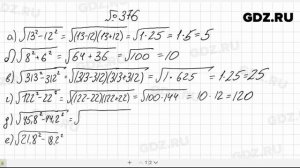 GDZ.RU
№376
а) √13²-12² = √(13-12)(13+12) = √1·25 = 1·5 = 5
б) √8²+6² = √64+36 = √100 = 10
в) √313²-312² = √(313-312)(313+312) = √1·625 = 1·25 = 25
г) √122²-22² = √(122-22)(122+22) = √100·144 = 10·12 = 120
д) √45,8²-44,2² = √
е) √21,8²-18,2²
GDZ.RU